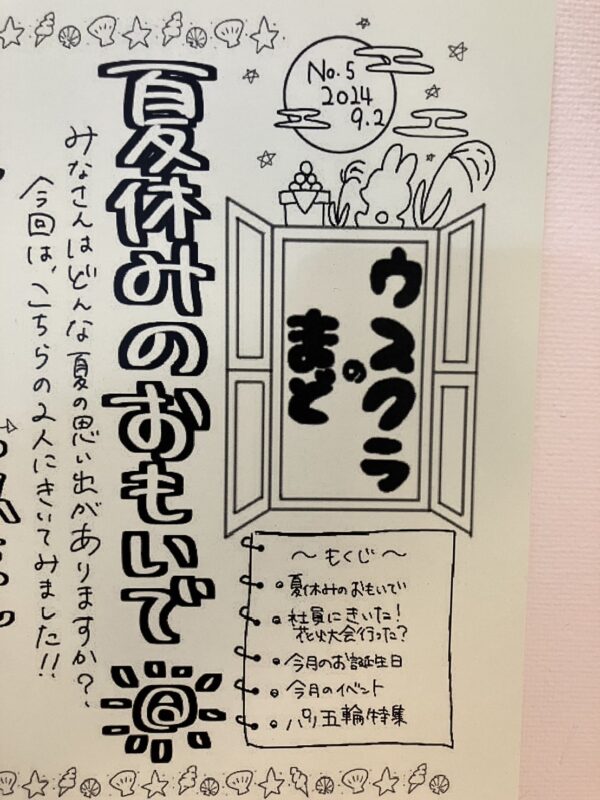 No.5
2024
9.2
ウスクラ
の
まど
夏休みのおもいで
みなさんはどんな夏の思い出がありますか?
今回は、こちらの2人にきいてみました!!
~もくじ~
夏休みのおもいでい
社員にきいた!
花火大会行った?
今月のお誕生日
今月のイベント
パリ五輪特集